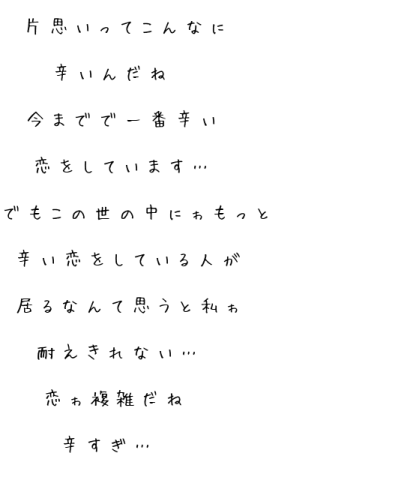 片思いってこんなに
辛いんだね
今までで一番辛い
恋をしています…
でもこの世の中にゎもっと
辛い恋をしている人が
居るなんて思うと私ゎ
耐えきれない…
恋ゎ複雑だね
辛すぎ…